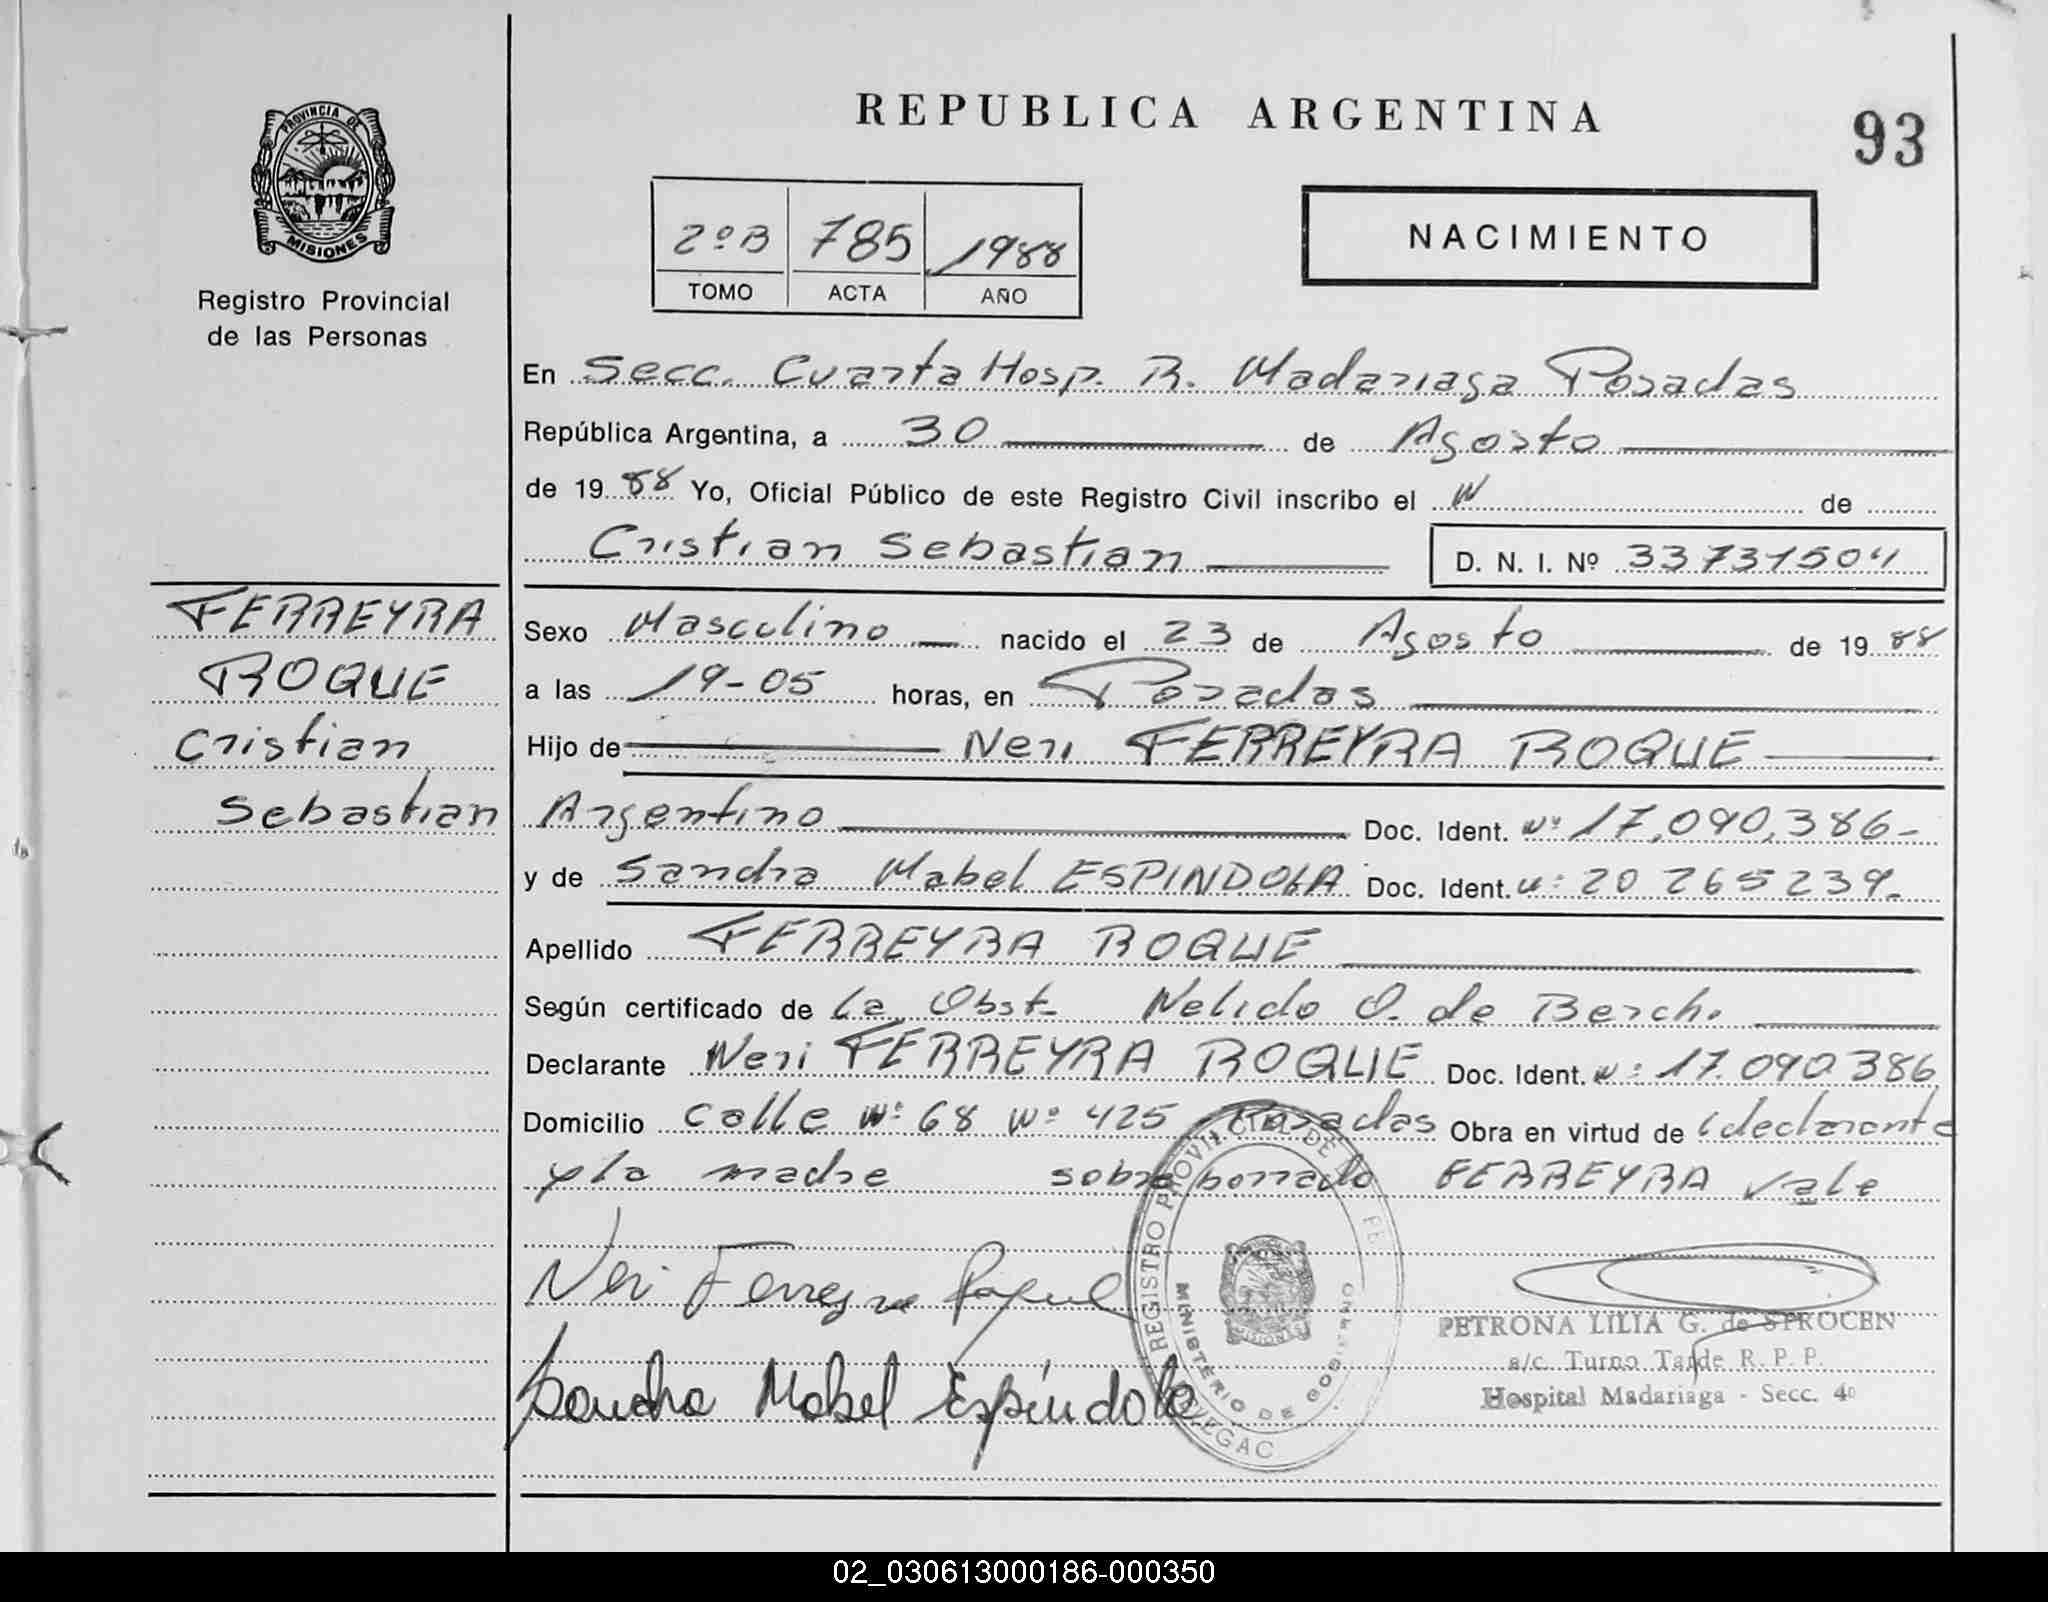 PROVINCIA DE
MISIONES
Registro Provincial
de las Personas
FERREYRA
ROQUE
Cristian
Sebastian
REPUBLICA ARGENTINA
93
2º B 785 1988
TOMO ACTA AÑO
NACIMIENTO
En Secc. Cuarta Hosp. R. Madariaga Posadas
República Argentina, a 30 de Agosto
de 1988 Yo, Oficial Público de este Registro Civil inscribo el N de
Cristian Sebastian D. N. I. Nº 33731504
Sexo Masculino nacido el 23 de Agosto de 1988
a las 19-05 horas, en Posadas
Hijo de Neri FERREYRA ROQUE
Argentino Doc. Ident. Nº 17,090,386-
y de Sandra Mabel ESPINDOLA Doc. Ident. Nº 20 265239-
Apellido FERREYRA ROQUE
Según certificado de la Obst. Nelida O. de Berch.
Declarante Neri FERREYRA ROQUE Doc. Ident. Nº 17.090.386
Domicilio Calle Nº 68 Nº 425 Posadas Obra en virtud de declarante
y la madre sobre borrado FERREYRA Vale
Neri Ferreyra Roque
Sandra Mabel Espíndola
REGISTRO PROVINCIAL DE
MINISTERIO DE GOBIERNO
MISIONES
PETRONA LILIA G. de SPROCEN
a/c. Turno Tarde R. P. P.
Hospital Madariaga - Secc. 4º
02_030613000186-000350